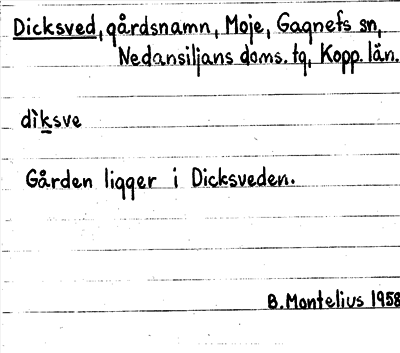 Dicksved, gårdsnamn, Moje, Gagnefs sn,
Nedansiljans doms. tg, Kopp. län.
dìksve
Gården ligger i Dicksveden.
B. Montelius 1958